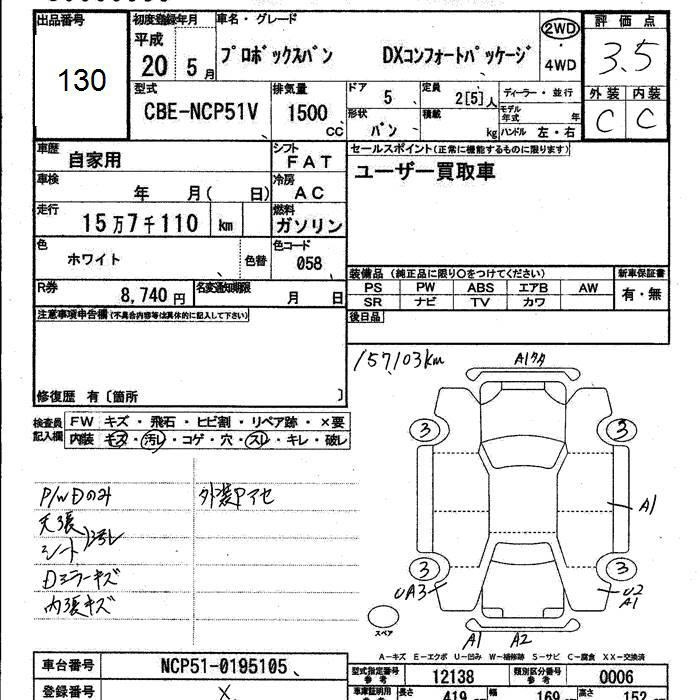 出品番号
130
初度登録年月
平成
20 5月
車名・グレード
プロボックスバン DXコンフォートパッケージ
2WD
・
4WD
評価点
3.5
外装 内装
C C
型式
CBE-NCP51V
排気量
1500
CC
ドア
5
定員
2[5]人
ディーラー・並行
形状
バン
積載
kg
モデル年式 年
ハンドル 左・右
車歴
自家用
シフト
FAT
セールスポイント(正常に機能するものに限ります)
ユーザー買取車
車検
年 月( 日)
冷房
AC
走行
15万7千110 km
燃料
ガソリン
色
ホワイト
色替
色コード
058
装備品(純正品に限り○をつけてください)
新車保証書
PS PW ABS エアB AW
有・無
SR ナビ TV カワ
R券
8,740円
名変通知期限
月 日
後日品
注意事項申告欄(不具合内容等は具体的に記入して下さい)
修復歴 有〔箇所 〕
157,103km
検査員
記入欄
FW キズ・飛石・ヒビ割・リペア跡・×要
内装 キズ・汚レ・コゲ・穴・スレ・キレ・破レ
P/WDのみ
天張
シート 汚レ
Dミラーキズ
内張キズ
外装Pアセ
A1
3 3
A1
3 3
UA3
U2
A1
スペア
A1 A2
A-キズ E-エクボ U-凹み W-補修跡 S-サビ C-腐食 XX-交換済
車台番号
NCP51-0195105
型式指定番号
参考
12138
類別区分番号
参考
0006
登録番号
X
車検証明用
参考
長さ
419
幅
169
高さ
152